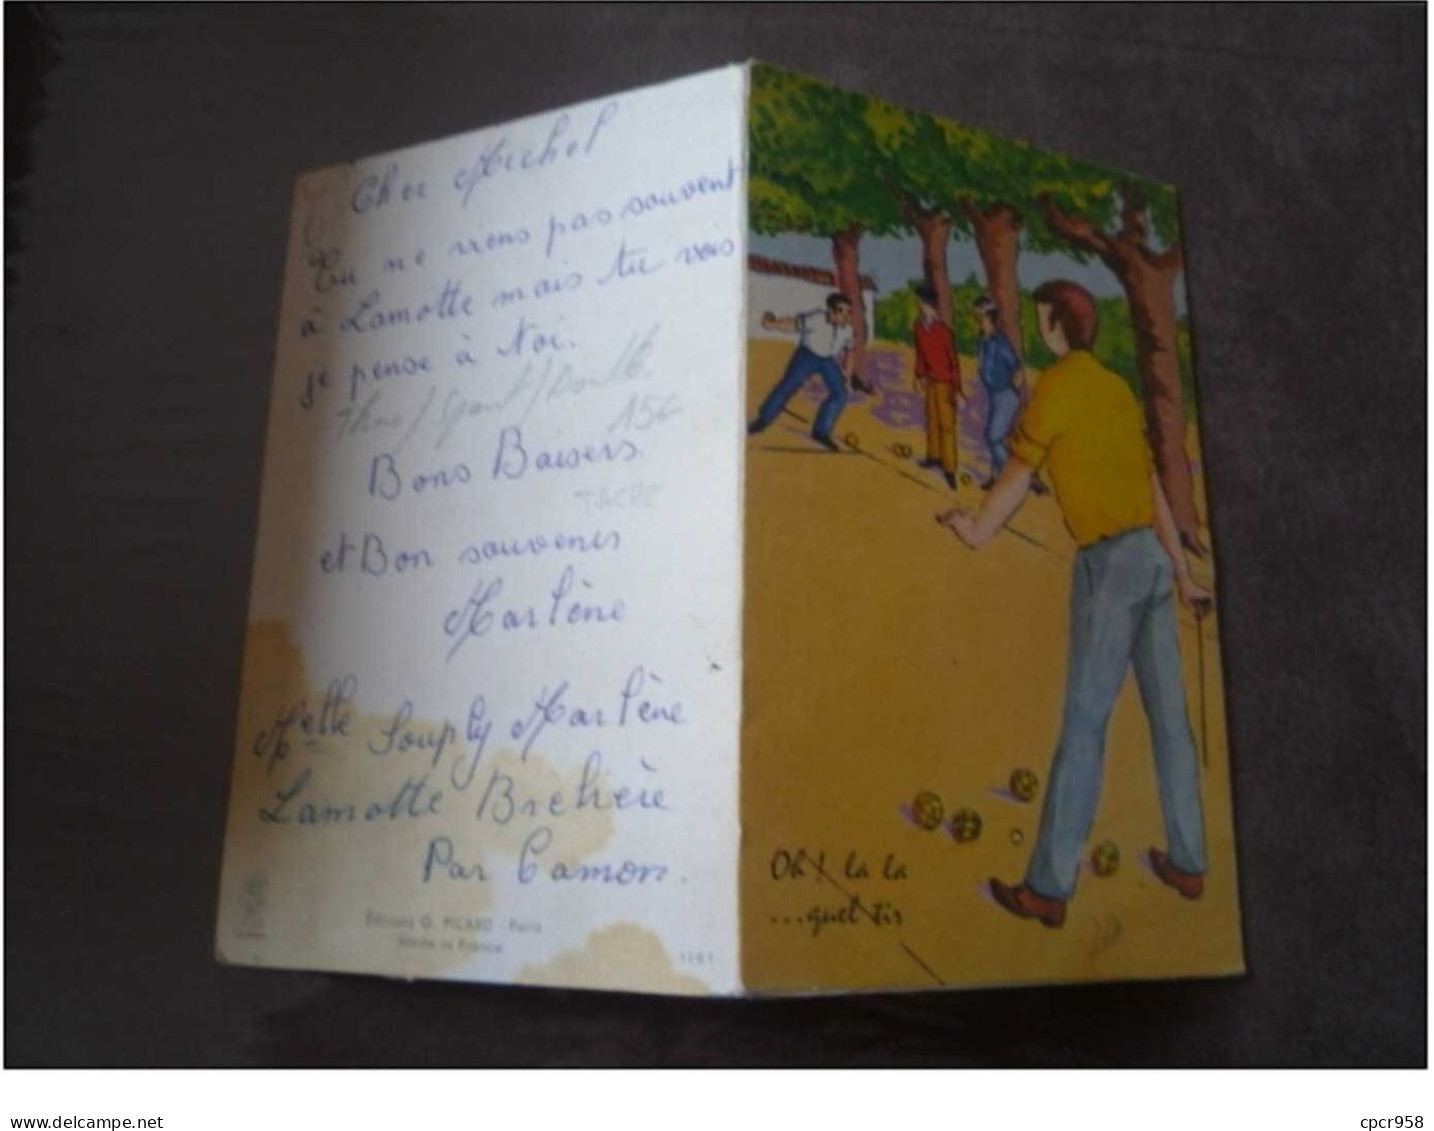 Cher Michel
Tu ne viens pas souvent
à Lamotte mais tu vois
je pense à toi.
Thme/Sport/Boule
15f
Bons Baisers
TACHE
et Bon souvenir
Marlène
Melle Souply Marlène
Lamotte Brehère
Par Camon.
Editions G. PICARD - Paris
Made in France
1181
Oh! la la
...quel tir
www.delcampe.net
cpcr958